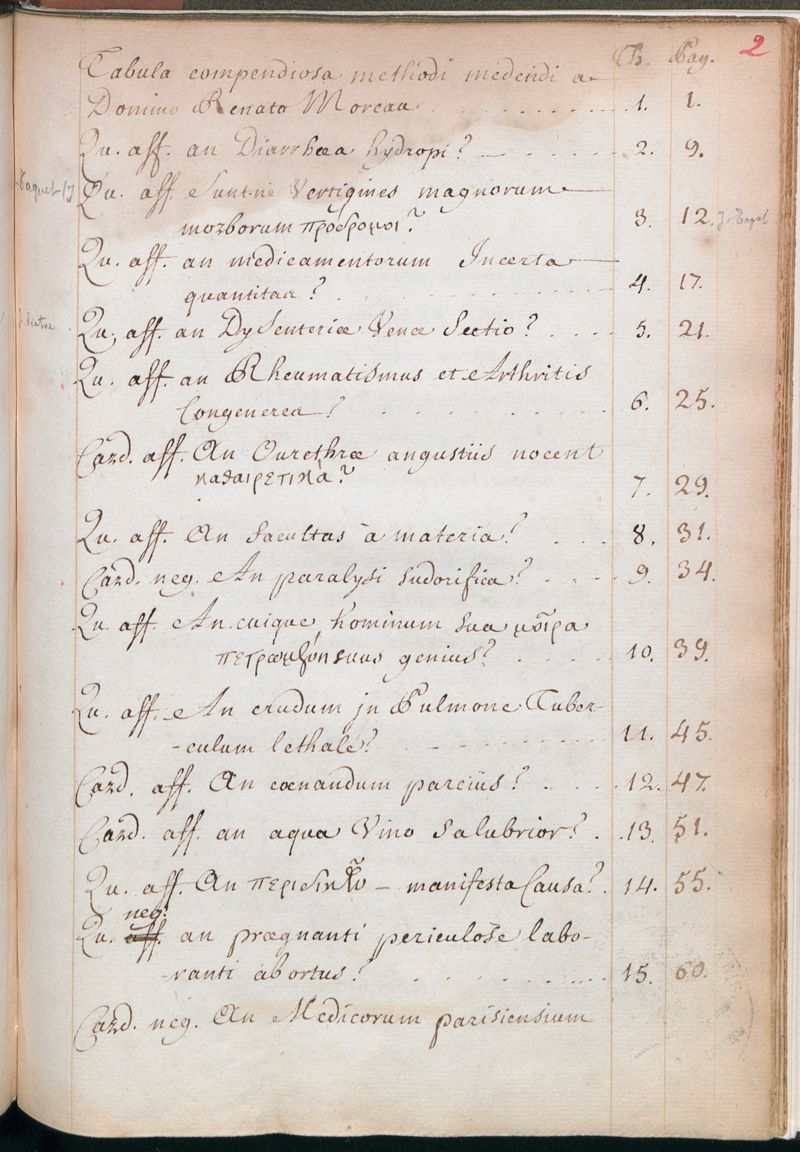 2
Th. Pag.
Tabula compendiosa methodi medendi a
Domino Renato Moreau . . . . . 1. 1.
Qu. aff. an Diarrhœa hydropi? . . . . 2. 9.
Qu. aff. Suntne Vertigines magnorum
morborum πρόδρομοι? 3. 12.
Qu. aff. an medicamentorum Incerta
quantitas? . . . . 4. 17.
Qu. aff. an Dysenteriæ Venæ Sectio? . . . . 5. 21.
Qu. aff. an Rheumatismus et Arthritis
Congeneres? . . . . 6. 25.
Card. aff. An Ourethræ angustiis nocent
καθαιρετικὰ? 7. 29.
Qu. aff. An facultas à materia? . . . 8. 31.
Card. neg. An paralysi sudorifica? . . . . 9. 34.
Qu. aff. An cuique hominum sua μοῖρα
suus genius? . . . . 10. 39.
Qu. aff. An crudum jn Pulmone Tuber-
-culum lethale? . . . . 11. 45.
Card. aff. An cœnandum parciùs? . . . . 12. 47.
Card. aff. an aqua Vino Salubrior? . 13. 51.
Qu. aff. An – manifesta Causa? . 14. 55.
neg.
Qu. aff. an prægnanti periculosè labo-
-ranti abortus? . . . . 15. 60.
Card. neg. An Medicorum parisiensium